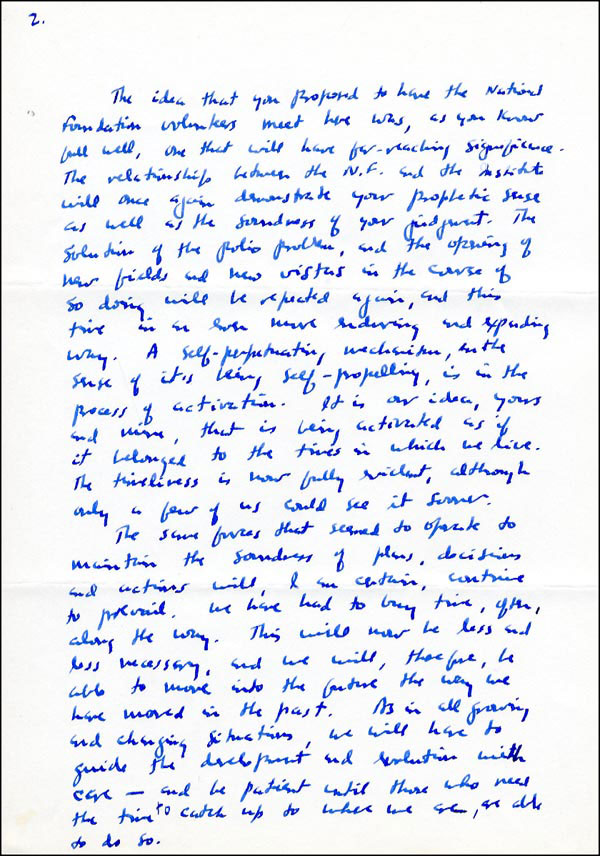 2.
The idea that you proposed to have the National
Foundation volunteers meet here was, as you know
full well, one that will have far-reaching significance.
The relationships between the N.F. and the Institute
will once again demonstrate your prophetic sense
as well as the soundness of your judgment. The
solution of the polio problem, and the opening of
new fields and new vistas in the course of
so doing will be repeated again, and this
time in an even more enduring and expanding
way. A self-perpetuating mechanism, in the
sense of it's being self-propelling, is in the
process of activation. It is our idea, yours
and mine, that is being activated as if
it belonged to the times in which we live.
The timeliness is now fully evident, although
only a few of us could see it sooner.
The same forces that seemed to operate to
maintain the soundness of plans, decisions
and actions will, I am certain, continue
to prevail. We have had to buy time, often,
along the way. This will now be less and
less necessary, and we will, therefore, be
able to move into the future the way we
have moved in the past. As in all growing
and changing situations, we will have to
guide the development and evolution with
care — and be patient until those who need
the time to catch up to where we are, are able
to do so.